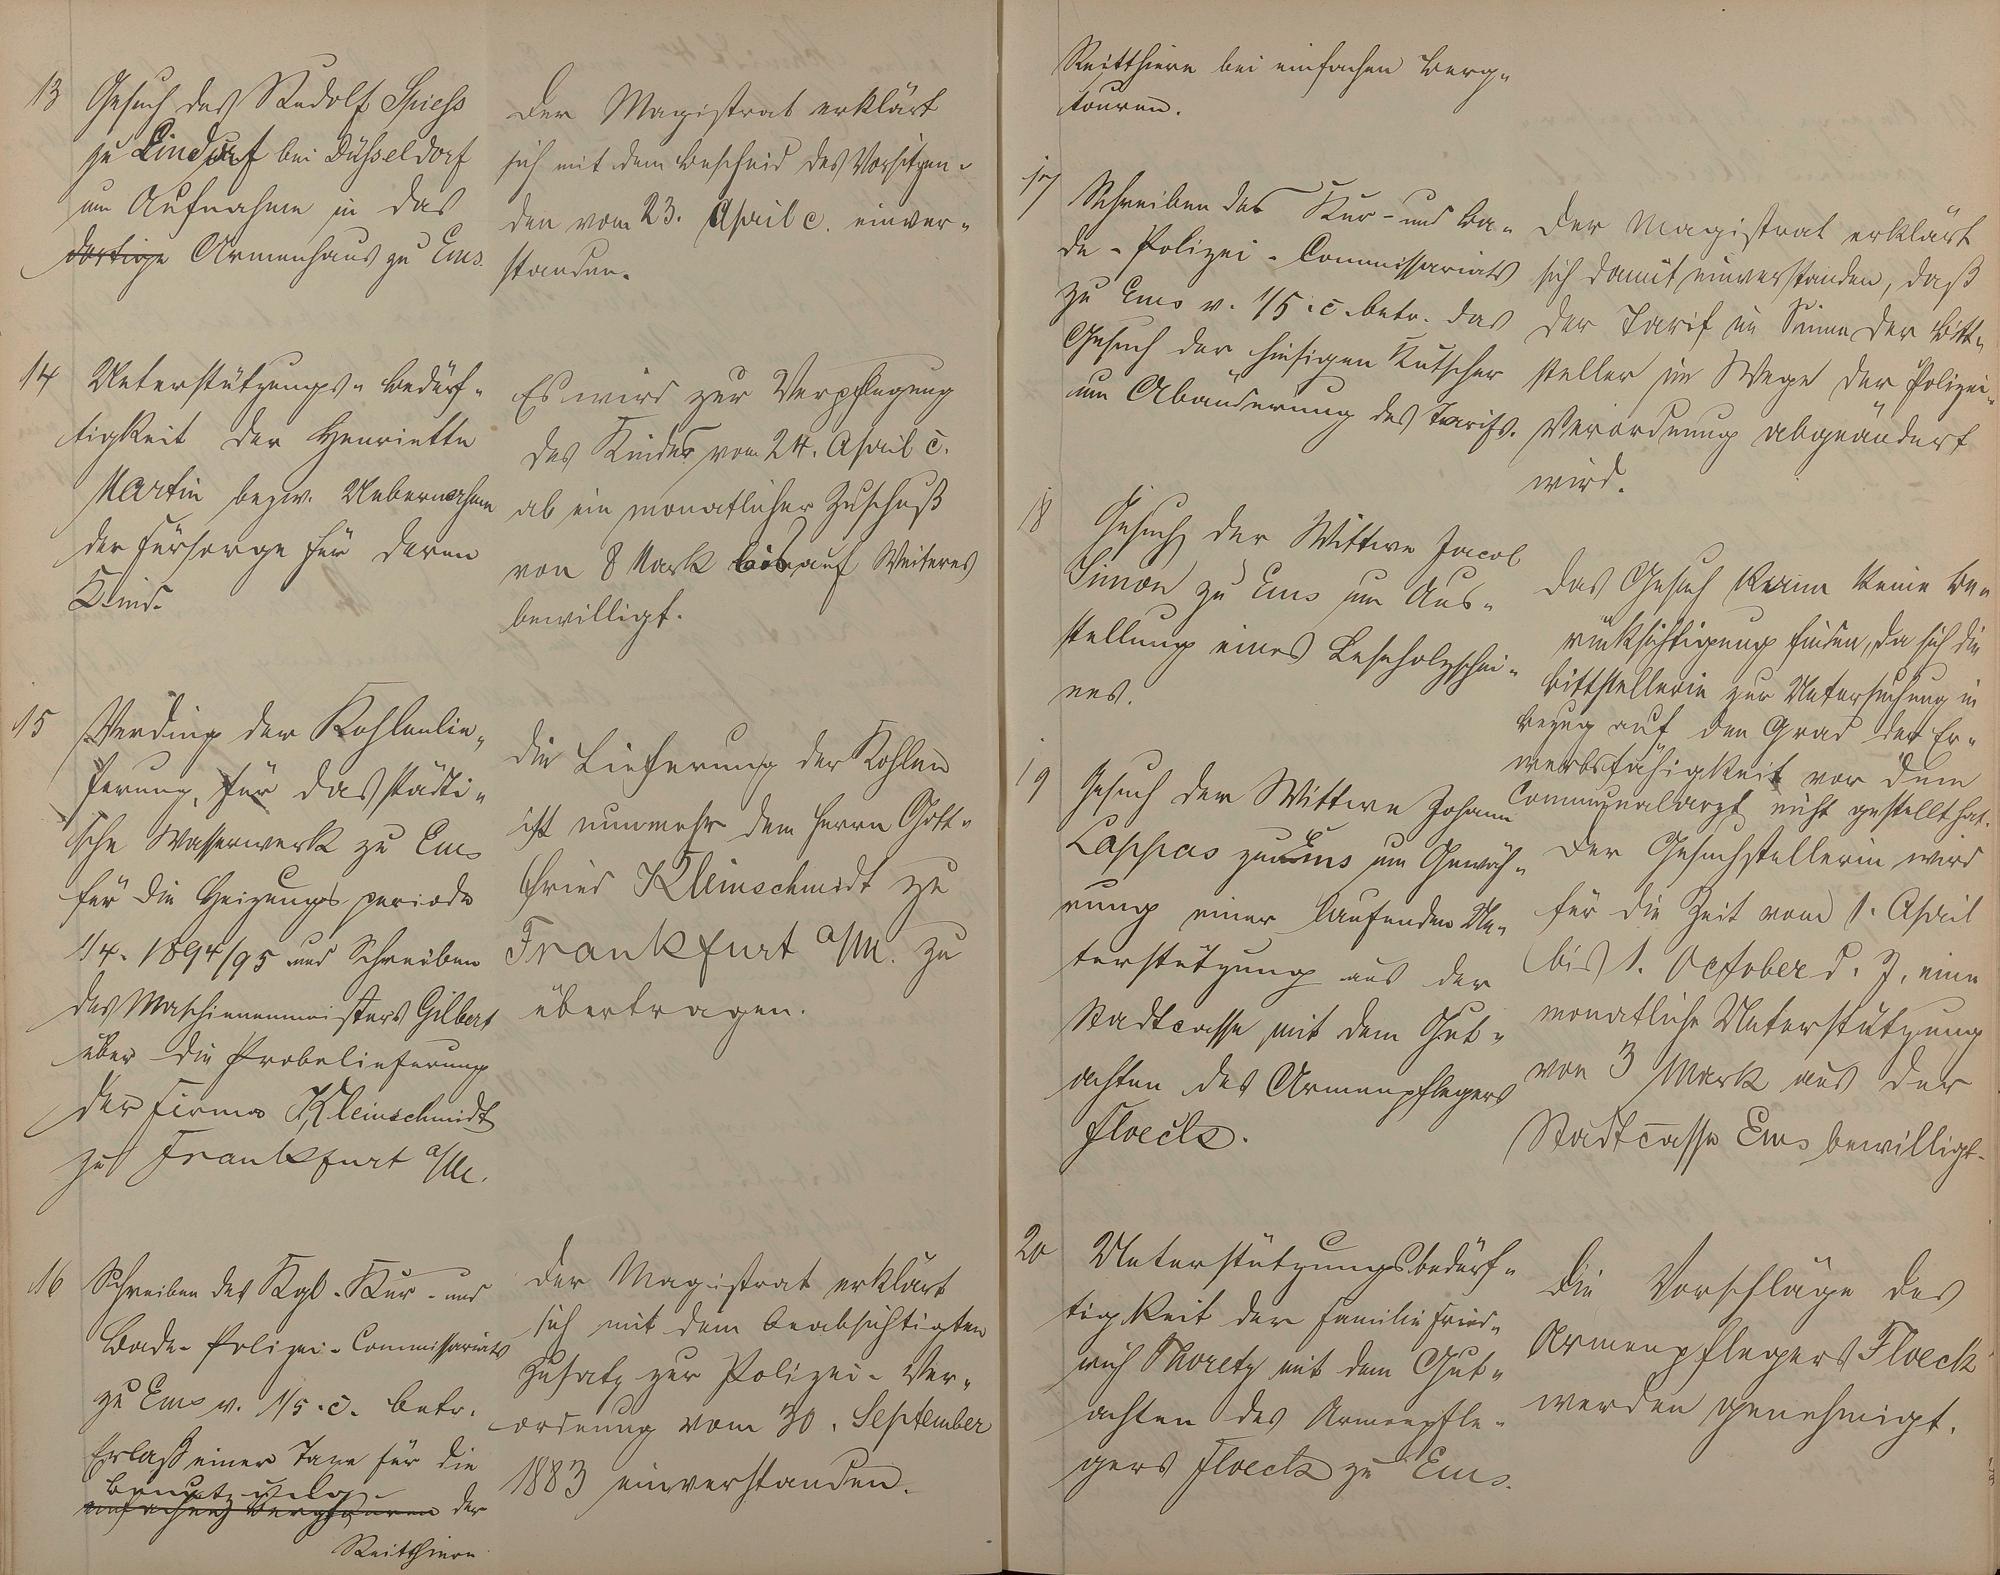 13 Gesuch des Rudolf Spiess
zu Lindorf bei Düsseldorf
um Aufnahme in das
dortige Armenhaus zu Ems.
Der Magistrat erklärt
sich mit dem Bescheid des Vorsitzen-
den vom 23. April c. einver-
standen.
14 Unterstützungs-Bedürf-
tigkeit der Henriette
Martin bezw. Uebernahme
der Fürsorge für deren
Kind.
Es wird zur Verpflegung
des Kindes vom 24. April c.
ab ein monatlicher Zuschuß
von 8 Mark bis auf Weiteres
bewilligt.
15 Verding der Kohlenlie-
ferung, für das städti-
sche Wasserwerk zu Ems
für die Heizungsperiode
1/4. 1894/95 und Schreiben
des Maschienenmeisters Gilbert
über die Probelieferung
der Firma Kleinschmidt
zu Frankfurt a/M.
Die Lieferung der Kohlen
ist nunmehr dem Herrn Gott-
fried Kleinschmidt zu
Frankfurt a/M. zu
übertragen.
16 Schreiben des Kgl. Kur- und
Bade-Polizei-Commissariats
zu Ems v. 1/5. c. betr.
Erlaß einer Taxe für die
Benutzung
einfachen Bergtouren der
Reitthiere
Der Magistrat erklärt
sich mit dem beabsichtigten
Zusatz zur Polizei-Ver-
ordnung vom 30. September
1883 einverstanden.
Reitthiere bei einfachen Berg-
touren.
17 Schreiben des Kur- und Ba-
de-Polizei-Commissariats
zu Ems v. 1/5. c. betr. das
Gesuch der hiesigen Kutscher
um Abänderung des Tarifs.
Der Magistrat erklärt
sich damit einverstanden, daß
der Tarif im Sinne der Bitt-
steller im Wege der Polizei-
Verordnung abgeändert
wird.
18 Gesuch der Wittwe Jacob
Simon zu Ems um Aus-
stellung eines Leseholzschei-
nes.
Das Gesuch kann keine Be-
rücksichtigung finden, da sich die
Bittstellerin zur Untersuchung in
Bezug auf den Grad der Er-
werbsfähigkeit vor dem
Communalarzt nicht gestellt hat.
19 Gesuch der Wittwe Johann
Lappas zu Ems um Gewäh-
rung einer laufenden Un-
terstützung aus der
Stadtcasse mit dem Gut-
achten des Armenpflegers
Floeck.
Der Gesuchstellerin wird
für die Zeit vom 1. April
bis 1. October d. J. eine
monatliche Unterstützung
von 3 Mark aus der
Stadtcasse Ems bewilligt.
20 Unterstützungsbedürf-
tigkeit der Familie Fried-
rich Moretz mit dem Gut-
achten des Armenpfle-
gers Floeck zu Ems.
Die Vorschläge des
Armenpflegers Floeck
werden genehmigt.